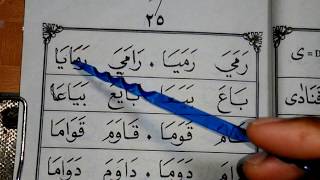 ٢٥
رَمَيَ رَمَيَا . رَامَيَ رَمَايَا
بَاعَ بَايَعَ بَيَاعَا
قَوَمَا . قَاوَمَ قَوَامَا
دَوَمَا . دَاوَمَ دَوَامَا
ى =